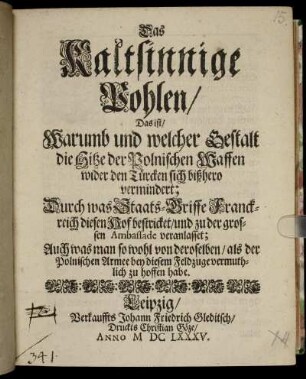 Das
Kaltsinnige
Pohlen/
Das ist/
Warumb und welcher Gestalt
die Hitze der Polnischen Waffen
wider den Türcken sich bißhero
vermindert;
Durch was Staats-Griffe Franck-
reich diesen Hof bestricket/ und zu der gros-
sen Ambassade veranlasset;
Auch was man so wohl von deroselben/ als der
Polnischen Armee bey diesem Feldzuge vermuth-
lich zu hoffen habe.
Leipzig/
Verkauffts Johann Friedrich Gleditsch/
Druckts Christian Göze/
ANNO M DC LXXXV.
341.